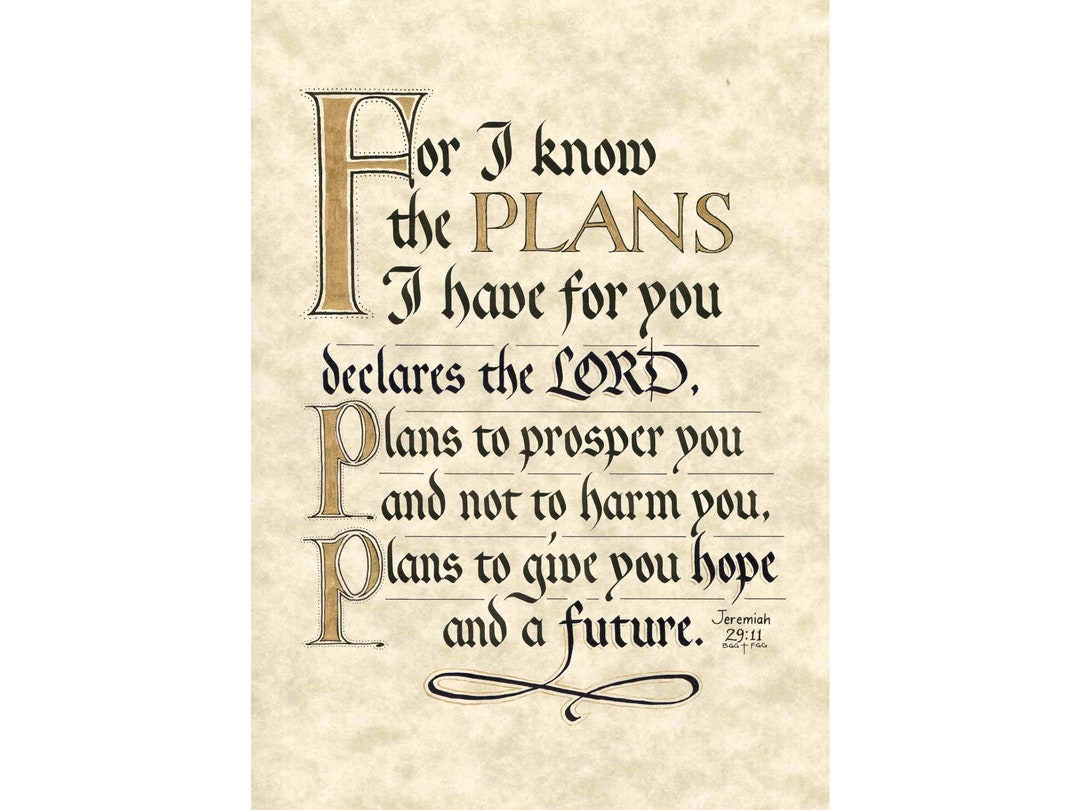 For I know
the PLANS
I have for you
declares the LORD,
Plans to prosper you
and not to harm you,
Plans to give you hope
and a future.
Jeremiah
29:11
BGG†FGG